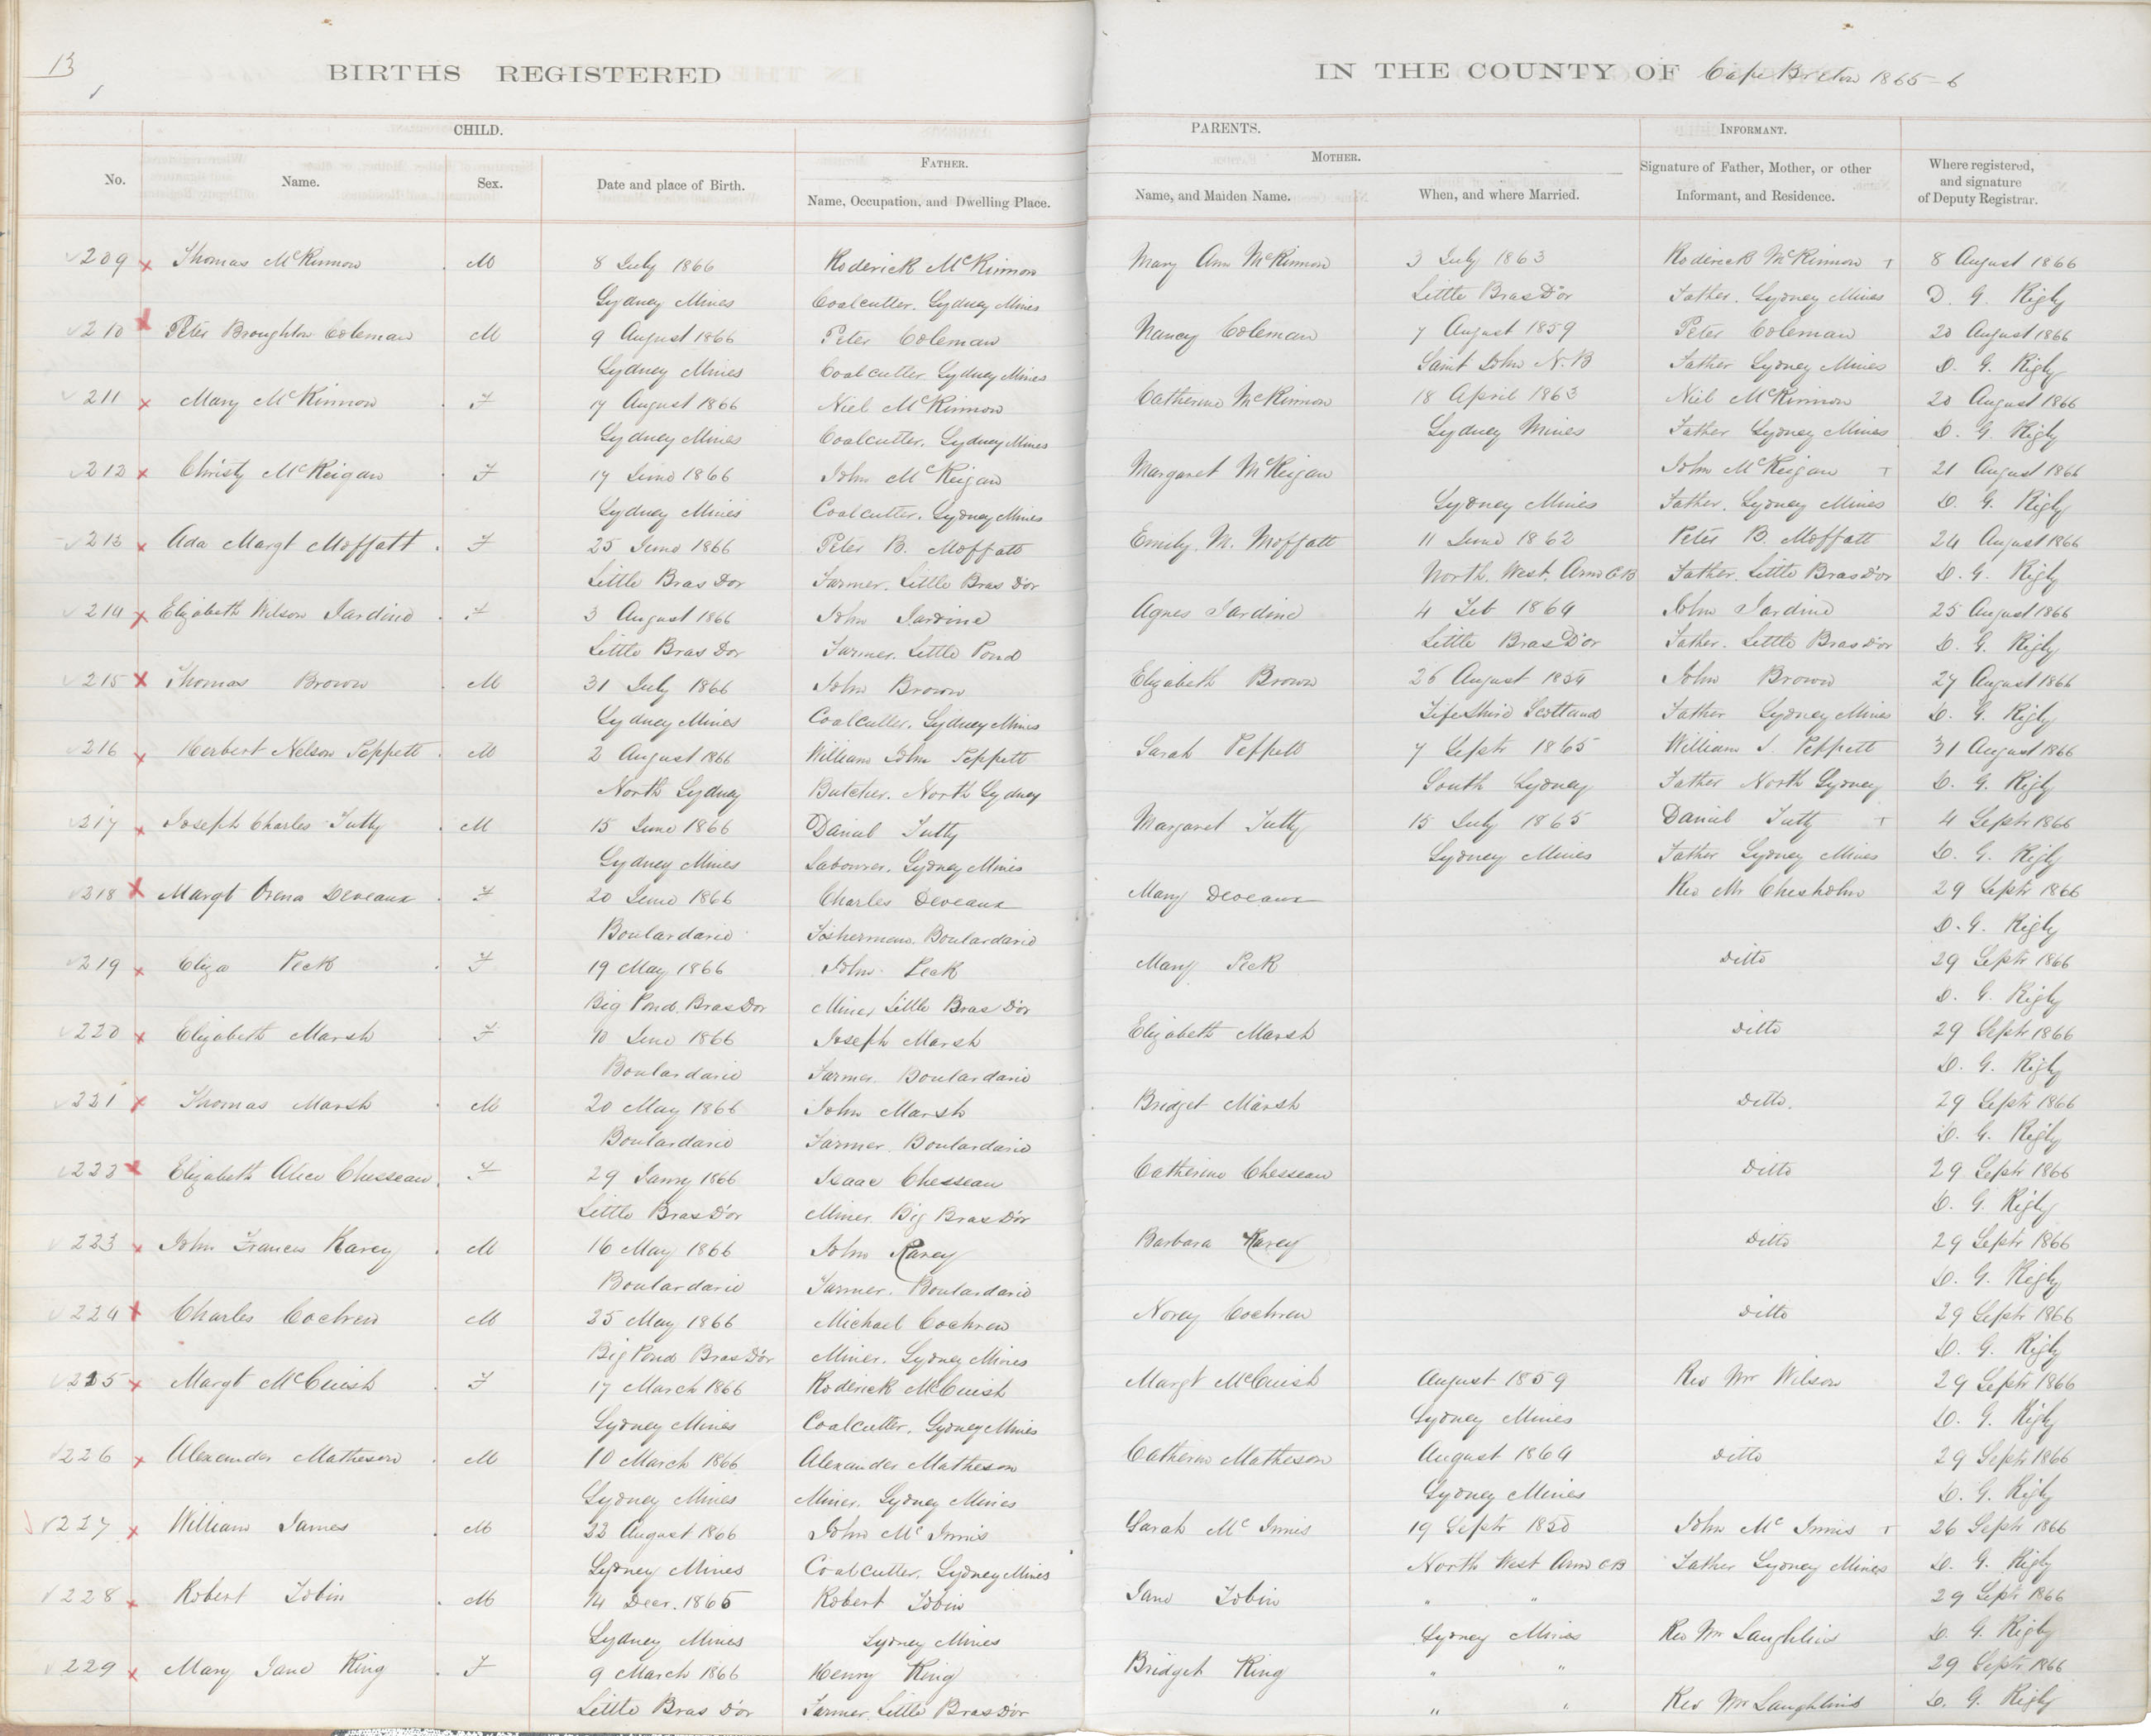 13
BIRTHS REGISTERED IN THE COUNTY OF Cape Breton 1865-6
CHILD. PARENTS. INFORMANT.
No. Name. Sex. Date and place of Birth. FATHER. Name, Occupation, and Dwelling Place. MOTHER. Name, and Maiden Name. When, and where Married. Signature of Father, Mother, or other Informant, and Residence. Where registered, and signature of Deputy Registrar.
209 x Thomas McKinnon M 8 July 1866 Roderick McKinnon Mary Ann McKinnon 3 July 1863 Roderick McKinnon + 8 August 1866
Sydney Mines Coalcutter. Sydney Mines Little Bras D'or Father. Sydney Mines D. G. Rigby
210 x Peter Broughton Coleman M 9 August 1866 Peter Coleman Nancy Coleman 7 August 1859 Peter Coleman 20 August 1866
Sydney Mines Coalcutter. Sydney Mines Saint John N.B Father Sydney Mines D. G. Rigby
211 x Mary McKinnon F 17 August 1866 Niel McKinnon Catherine McKinnon 18 April 1863 Niel McKinnon 20 August 1866
Sydney Mines Coalcutter. Sydney Mines Sydney Mines Father Sydney Mines D. G. Rigby
212 x Christy McKeigan F 17 June 1866 John McKeigan Margaret McKeigan John McKeigan + 21 August 1866
Sydney Mines Coalcutter. Sydney Mines Sydney Mines Father. Sydney Mines D. G. Rigby
213 x Ada Margt Moffatt F 25 June 1866 Peter B. Moffatt Emily M. Moffatt 11 June 1862 Peter B. Moffatt 24 August 1866
Little Bras Dor Farmer. Little Bras D'or North. West. Arm C.B Father. Little Bras d'or D. G. Rigby
214 x Elizabeth Wilson Jardine F 3 August 1866 John Jardine Agnes Jardine 4 Feb 1864 John Jardine 25 August 1866
Little Bras Dor Farmer. Little Pond Little Bras D'or Father. Little Bras d'or D. G. Rigby
215 x Thomas Brown M 31 July 1866 John Brown Elizabeth Brown 26 August 1854 John Brown 27 August 1866
Sydney Mines Coalcutter. Sydney Mines Fifeshire Scotland Father Sydney Mines D. G. Rigby
216 x Herbert Nelson Peppett M 2 August 1866 William John Peppett Sarah Peppett 7 Septr 1865 William J. Peppett 31 August 1866
North Sydney Butcher. North Sydney South Sydney Father North Sydney D. G. Rigby
217 x Joseph Charles Tutty M 15 June 1866 Danial Tutty Margaret Tutty 15 July 1865 Danial Tutty + 4 Septr 1866
Sydney Mines Labourer. Sydney Mines Sydney Mines Father Sydney Mines D. G. Rigby
218 x Margt Orena Deveaux F 20 June 1866 Charles Deveaux Mary Deveaux Rev Mr Chesholm 29 Septr 1866
Boulardarie Fisherman. Boulardarie D. G. Rigby
219 x Eliza Peck F 19 May 1866 John Peck Mary Peck Ditto 29 Septr 1866
Big Pond. Bras Dor Miner Little Bras D'or D. G. Rigby
220 x Elizabeth Marsh F 10 June 1866 Joseph Marsh Elizabeth Marsh Ditto 29 Septr 1866
Boulardarie Farmer. Boulardarie D. G. Rigby
221 x Thomas Marsh M 20 May 1866 John Marsh Bridget Marsh Ditto. 29 Septr 1866
Boulardarie Farmer. Boulardarie D. G. Rigby
222 x Elizabeth Alice Chesseau F 29 Janry 1866 Isaac Chesseau Catherine Chesseau Ditto 29 Septr 1866
Little Bras D'or Miner. Big Bras D'or D. G. Rigby
223 x John Francis Karey M 16 May 1866 John Karey Barbara Karey Ditto 29 Septr 1866
Boulardarie Farmer. Boulardarie D. G. Rigby
224 x Charles Cochren M 25 May 1866 Michael Cochren Norey Cochren Ditto 29 Septr 1866
Big Pond Bras D'or Miner. Sydney Mines D. G. Rigby
225 x Margt McCuish F 17 March 1866 Roderick McCuish Margt McCuish August 1859 Rev Mr Wilson 29 Septr 1866
Sydney Mines Coalcutter. Sydney Mines Sydney Mines D. G. Rigby
226 x Alexander Matheson M 10 March 1866 Alexander Matheson Catherine Matheson August 1864 Ditto 29 Septr 1866
Sydney Mines Miner. Sydney Mines Sydney Mines D. G. Rigby
227 x William James M 22 August 1866 John McInnis Sarah McInnis 19 Septr 1850 John McInnis + 26 Septr 1866
Sydney Mines Coalcutter. Sydney Mines North West Arm CB Father Sydney Mines D. G. Rigby
228 x Robert Tobin M 14 Decr. 1865 Robert Tobin Jane Tobin " " 29 Septr 1866
Sydney Mines Sydney Mines Sydney Mines Rev Mr Laughlins D. G. Rigby
229 x Mary Jane King F 9 March 1866 Henry King Bridget King " " 29 Septr 1866
Little Bras d'or Farmer. Little Bras D'or " " Rev Mr Laughlins D. G. Rigby